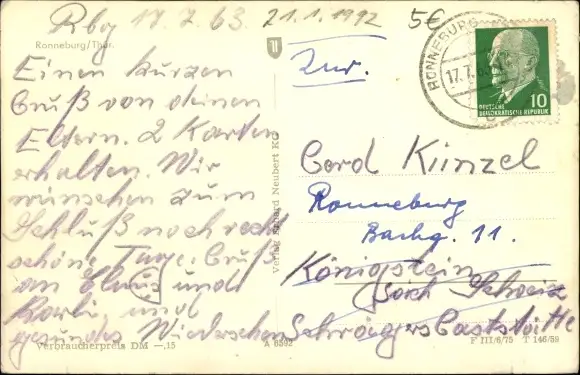 Rbg 17.7.63. 21.1.1992 5€
Ronneburg/Thür.
Einen kurzen
Gruß von deinen
Eltern. 2 Karten
erhalten. Wir
wünschen zum
Schluß noch recht
schöne Tage. Gruß
an Claus und
Karli, und
gesundes Wiedersehen
Verbraucherpreis DM —,15
Verlag Erhard Neubert KG
A 6592
RONNEBURG
17.7.63
DEUTSCHE
DEMOKRATISCHE REPUBLIK
10
Zur.
Gerd Künzel
Ronneburg
Bachg. 11.
Königstein
Säch Schweiz
Schwägers Gaststätte
F III/6/75 T 146/59